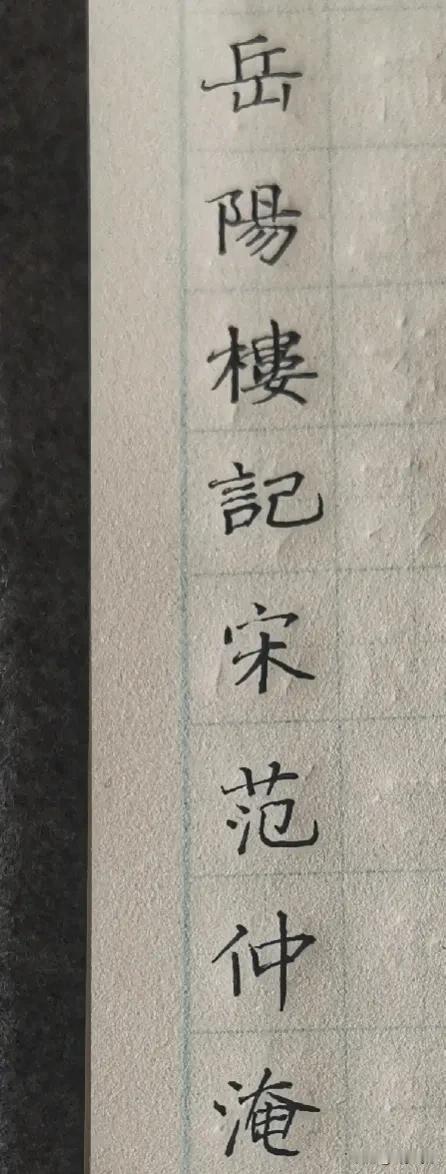 岳陽樓記宋范仲淹